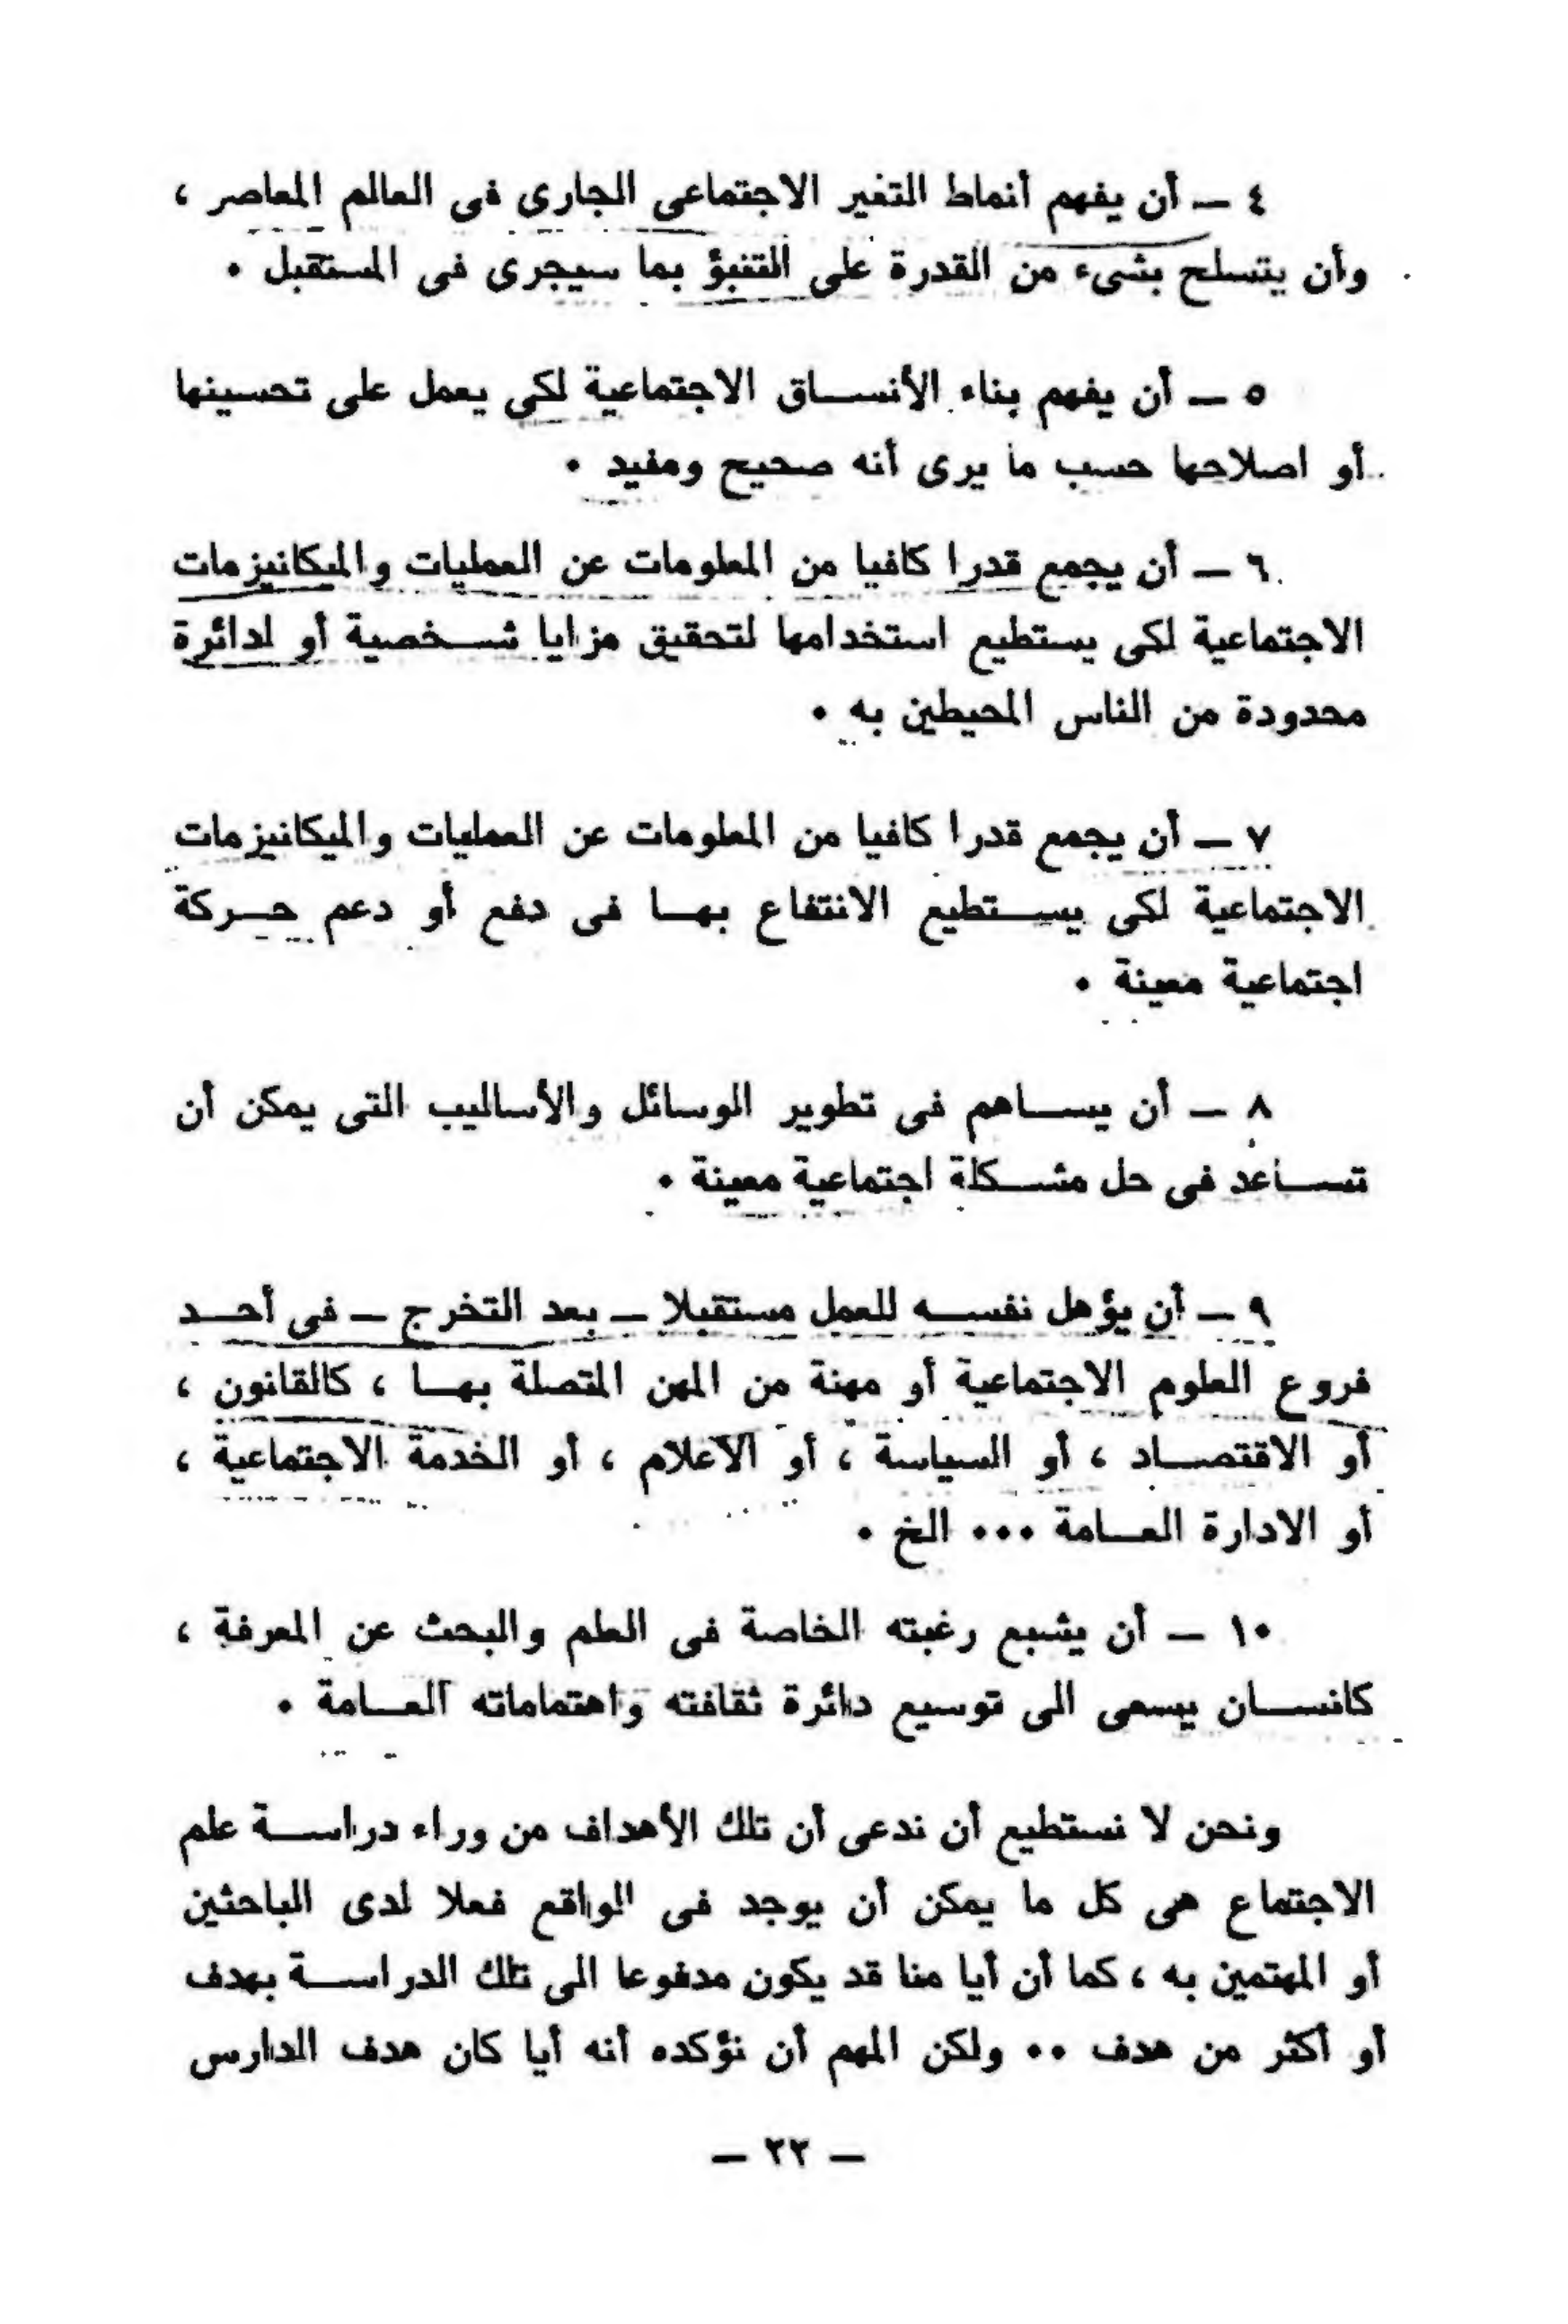 ٤ — أن يفهم أنماط التغير الاجتماعى الجارى فى العالم المعاصر ،
وأن يتسلح بشىء من القدرة على التنبؤ بما سيجرى فى المستقبل .
٥ — أن يفهم بناء الأنساق الاجتماعية لكى يعمل على تحسينها
أو اصلاحها حسب ما يرى أنه صحيح ومفيد .
٦ — أن يجمع قدرا كافيا من المعلومات عن العمليات والميكانيزمات
الاجتماعية لكى يستطيع استخدامها لتحقيق مزايا شخصية أو لدائرة
محدودة من الناس المحيطين به .
٧ — أن يجمع قدرا كافيا من المعلومات عن العمليات والميكانيزمات
الاجتماعية لكى يستطيع الانتفاع بها فى دفع أو دعم حركة
اجتماعية معينة .
٨ — أن يساهم فى تطوير الوسائل والأساليب التى يمكن أن
تساعد فى حل مشكلة اجتماعية معينة .
٩ — أن يؤهل نفسه للعمل مستقبلا — بعد التخرج — فى أحد
فروع العلوم الاجتماعية أو مهنة من المهن المتصلة بها ، كالقانون ،
أو الاقتصاد ، أو السياسة ، أو الاعلام ، أو الخدمة الاجتماعية ،
أو الادارة العامة ... الخ .
١٠ — أن يشبع رغبته الخاصة فى العلم والبحث عن المعرفة ،
كانسان يسعى الى توسيع دائرة ثقافته واهتماماته العامة .
ونحن لا نستطيع أن ندعى أن تلك الأهداف من وراء دراسة علم
الاجتماع هى كل ما يمكن أن يوجد فى الواقع فعلا لدى الباحثين
أو المهتمين به ، كما أن أيا منا قد يكون مدفوعا الى تلك الدراسة بهدف
أو أكثر من هدف .. ولكن المهم أن نؤكده أنه أيا كان هدف الدارس
— ٢٢ —